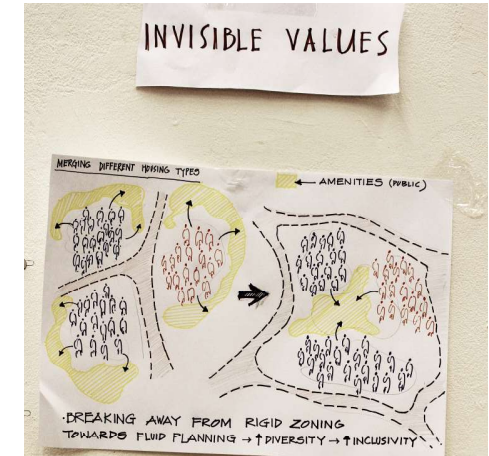 INVISIBLE VALUES
MERGING DIFFERENT HOUSING TYPES
← AMENITIES (PUBLIC)
· BREAKING AWAY FROM RIGID ZONING
TOWARDS FLUID PLANNING → ↑ DIVERSITY → ↑ INCLUSIVITY